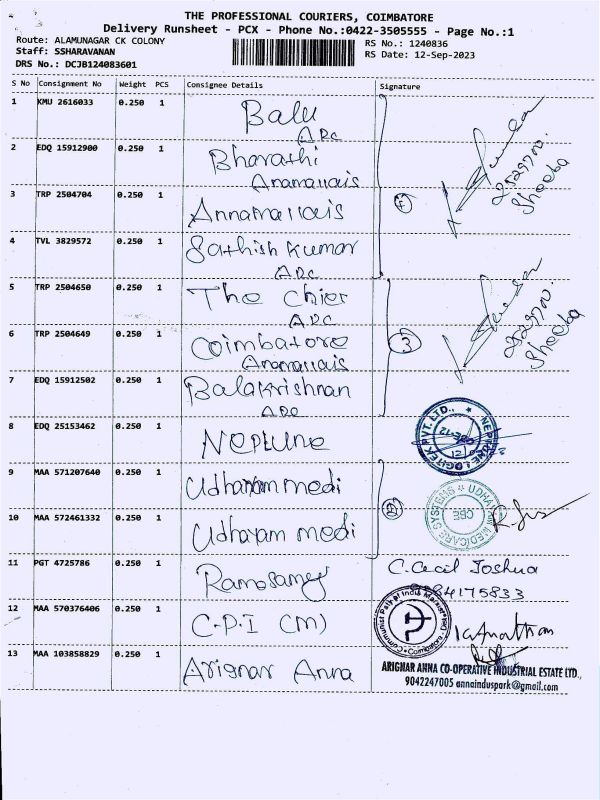 THE PROFESSIONAL COURIERS, COIMBATORE
Delivery Runsheet - PCX - Phone No.:0422-3505555 - Page No.:1
Route: ALAMUNAGAR CK COLONY
Staff: SSHARAVANAN
DRS No.: DCJB124083601
RS No.: 1240836
RS Date: 12-Sep-2023
S No Consignment No Weight PCS Consignee Details Signature
1 KMU 2616033 0.250 1 Balu
2 EDQ 15912900 0.250 1 Bharathi
Anamallais
3 TRP 2504704 0.250 1 Annamallais
4 TVL 3829572 0.250 1 Sathish Kumar
5 TRP 2504650 0.250 1 The Chief
6 TRP 2504649 0.250 1 Coimbatore
Anamallais
7 EDQ 15912502 0.250 1 Balakrishnan
8 EDQ 25153462 0.250 1 Neptune
9 MAA 571207640 0.250 1 Udhayam medi
10 MAA 572461332 0.250 1 Udhayam medi
11 PGT 4725786 0.250 1 Ramasamy
12 MAA 570376406 0.250 1 C.P.I (M)
13 MAA 103858829 0.250 1 Arignar Anna
Sheeba
3
Sheeba
NEPTUNE LOGITEK PVT. LTD.,
CBE-12
2
UDHAYAM MEDICARE SYSTEMS
CBE
C. Cecil Joshua
Communist Party of India Marxist
Coimbatore
ARIGNAR ANNA CO-OPERATIVE INDUSTRIAL ESTATE LTD.,
9042247005 annainduspark@gmail.com